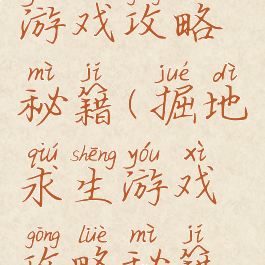 游戏攻略
mì jí jué dì
秘籍(掘地
qiú shēng yóu xì
求生游戏
gōng lüè mì jí
攻略秘籍